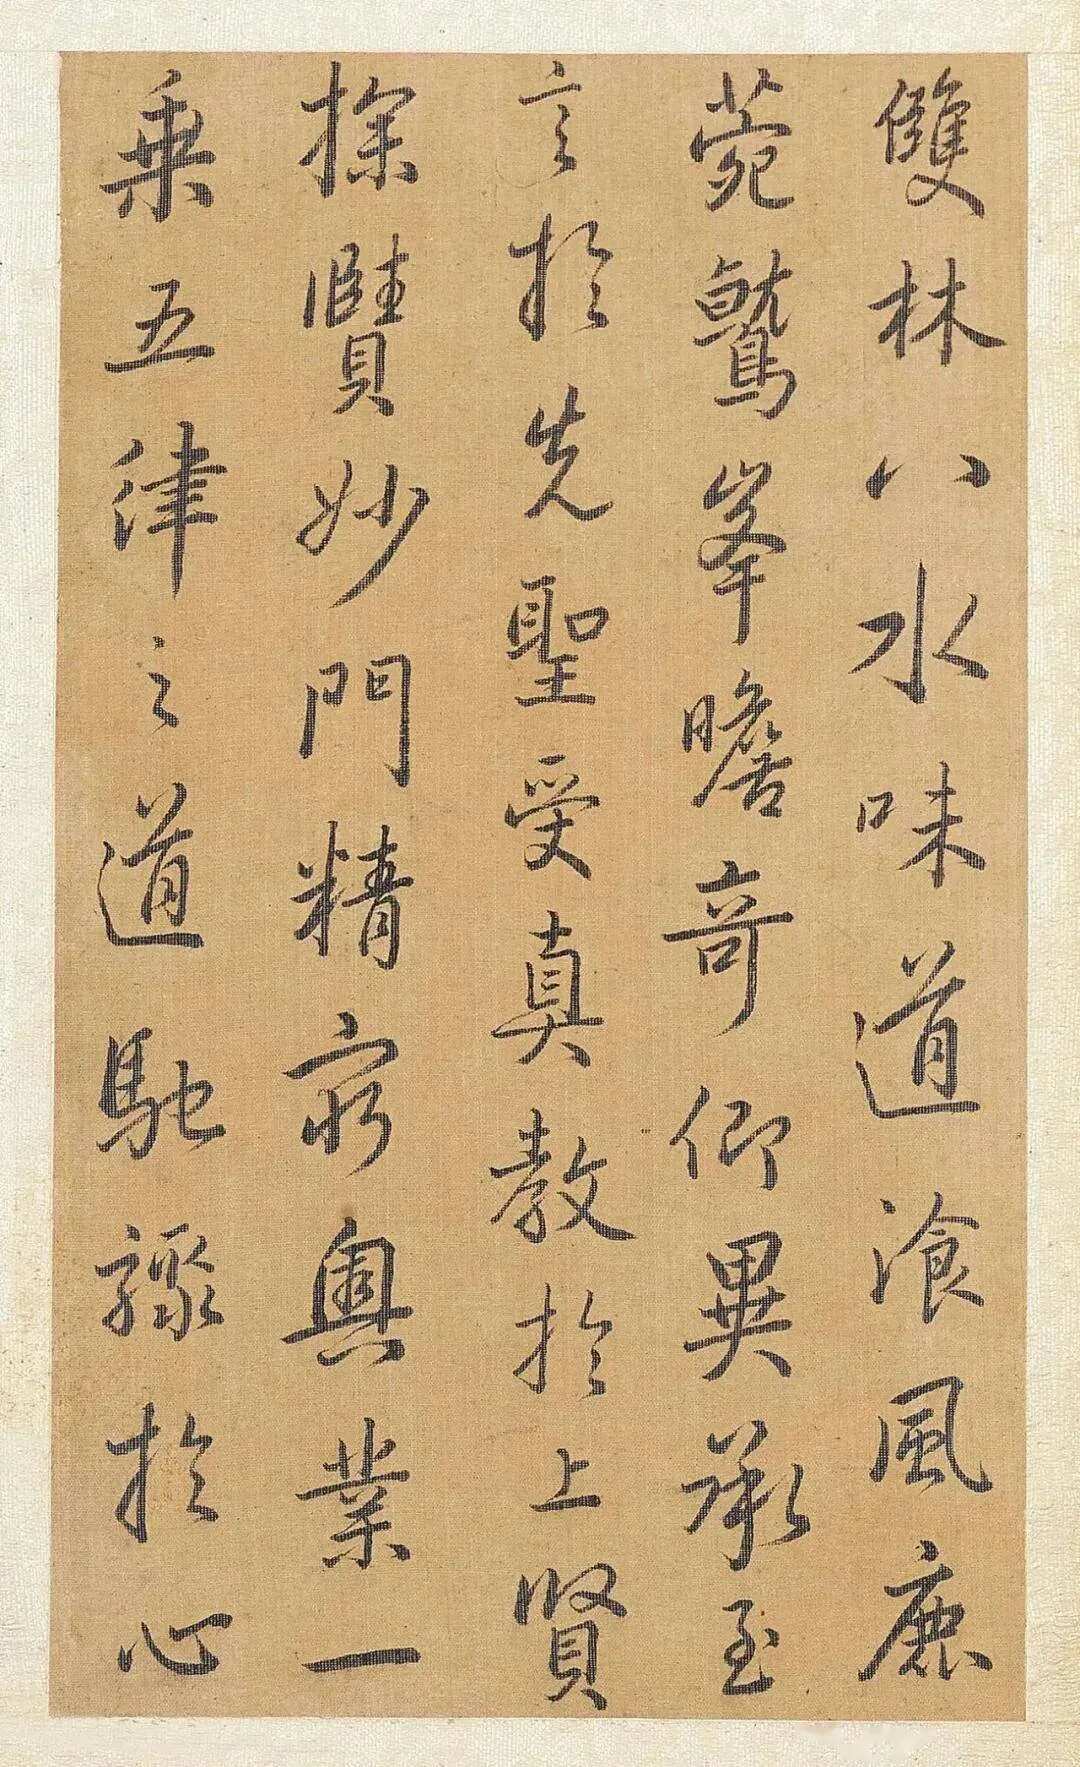 雙林八水味道湌風鹿
菀鷲峯瞻奇仰異承至
言於先聖受真教於上賢
探賾妙門精窮奧業一
乗五律之道馳驟於心